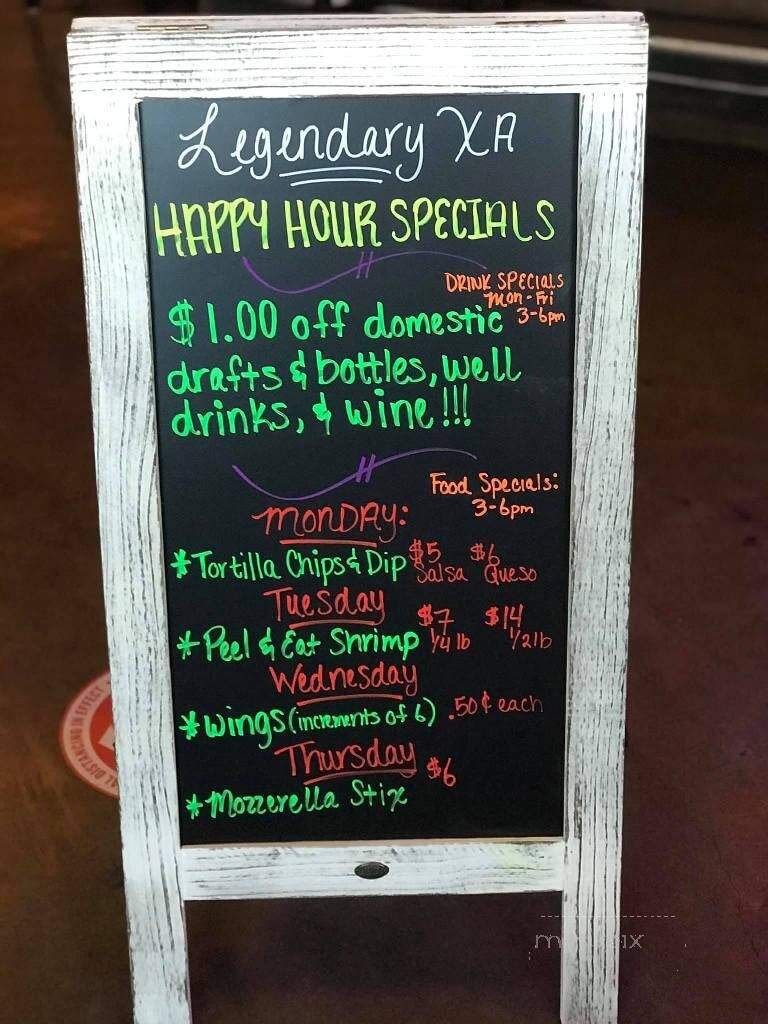 Legendary XA
HAPPY HOUR SPECIALS
DRINK SPECIALS
Mon-Fri
3-6pm
$1.00 off domestic
drafts & bottles, well
drinks, & wine!!!
Food Specials:
3-6pm
MONDAY:
*Tortilla Chips & Dip $5 Salsa $6 Queso
Tuesday
*Peel & Eat Shrimp $7 1/4 lb $14 1/2 lb
Wednesday
*Wings (increments of 6) .50¢ each
Thursday
*Mozzerella Stix $6
DISTANCING IN EFFECT